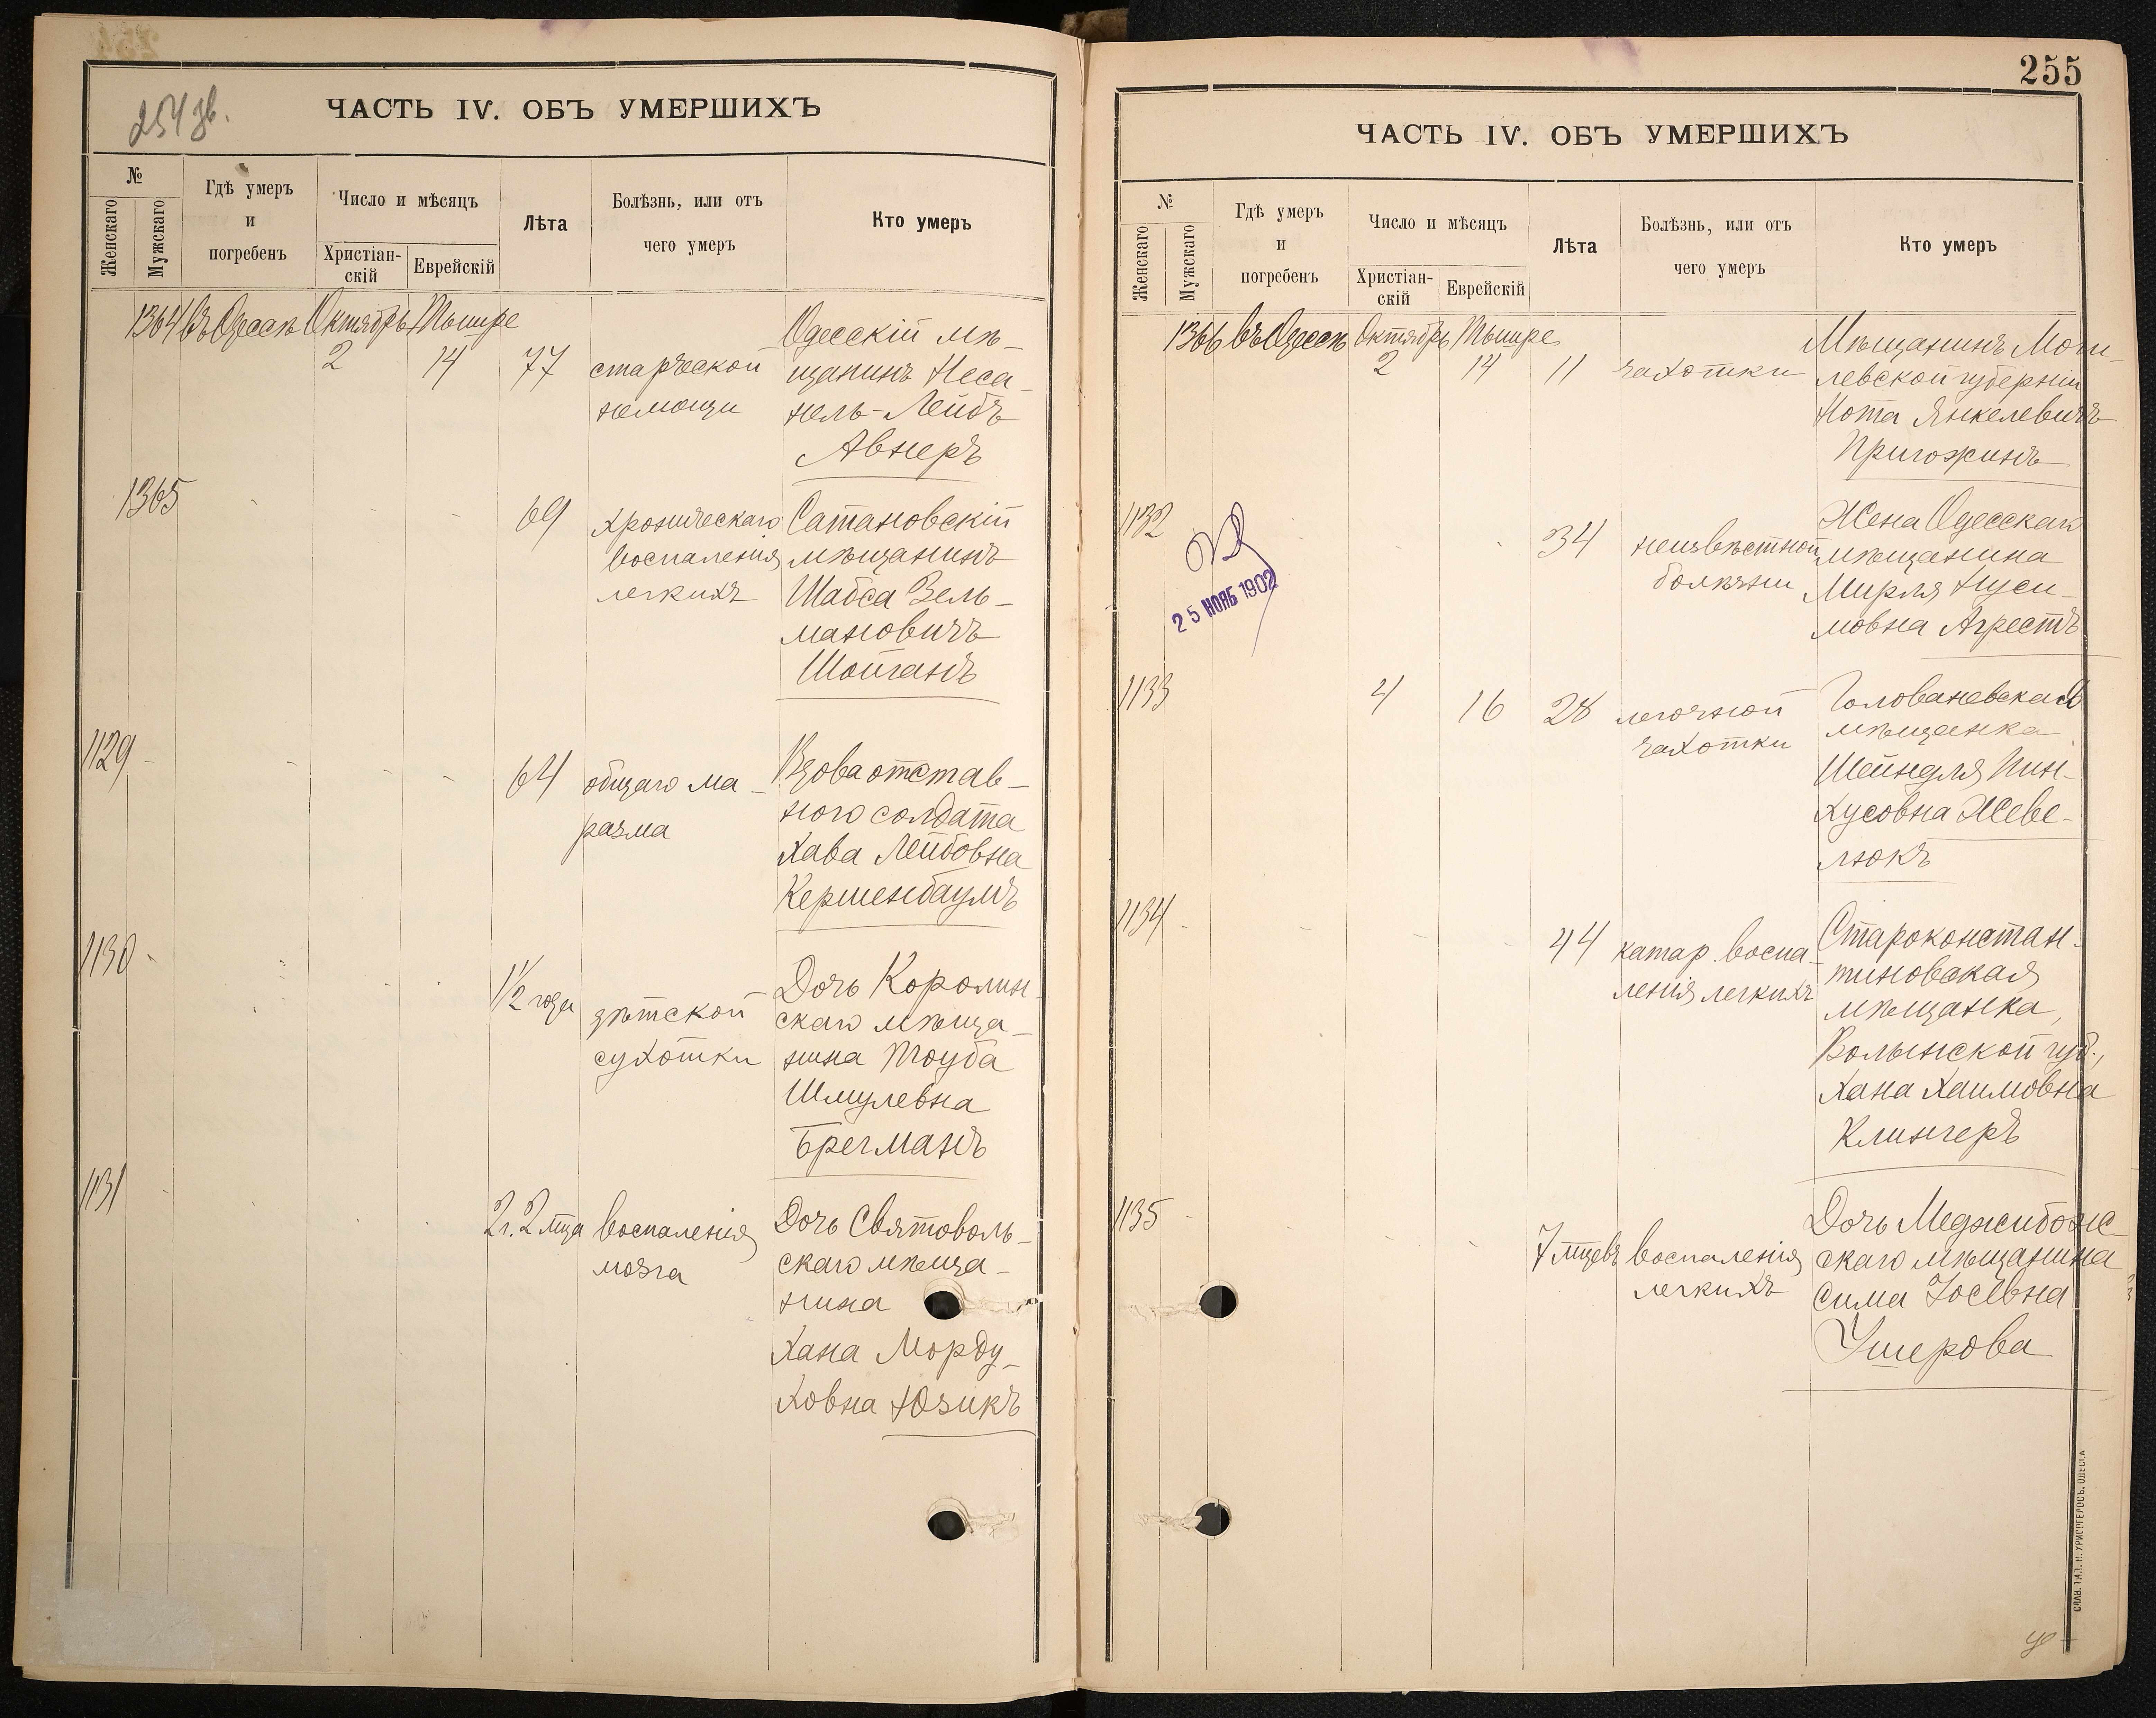 254 зв.
ЧАСТЬ IV. ОБЪ УМЕРШИХЪ
№
Женскаго
Мужскаго
Гдѣ умеръ
и
погребенъ
Число и мѣсяцъ
Христіан-
скій
Еврейскій
Лѣта
Болѣзнь, или отъ
чего умеръ
Кто умеръ
1364 въ Одессѣ Октябрь Тышре
2 14 77
старческой
немощи
Одесскій мѣ-
щанинъ Неса-
нель-Лейбъ
Авнеръ
1365
69
хроническаго
воспаленія
легкихъ
Сатановскій
мѣщанинъ
Шабса Зель-
мановичъ
Шойганъ
1129
64
общаго ма-
разма
Вдова отстав-
ного солдата
Хава Лейбовна
Кершенбаумъ
1130
1 1/2 года
дѣтской
сухотки
Дочь Королин-
скаго мѣща-
нина Тоуба
Шмулевна
Брегманъ
1131
2 г. 2 мца
воспаленія
мозга
Дочь Святополь-
скаго мѣща-
нина
Хана Морду-
ховна Юзикъ
255
ЧАСТЬ IV. ОБЪ УМЕРШИХЪ
№
Женскаго
Мужскаго
Гдѣ умеръ
и
погребенъ
Число и мѣсяцъ
Христіан-
скій
Еврейскій
Лѣта
Болѣзнь, или отъ
чего умеръ
Кто умеръ
1366 въ Одессѣ Октябрь Тышре
2 14 11
чахотки
Мѣщанинъ Моги-
левской губерніи
Нота Янкелевичъ
Пригожинъ
1132
25 НОЯБ 1902
34
неизвѣстной
болѣзни
Жена Одесскаго
мѣщанина
Мирля Нуси-
мовна Агрестъ
1133
4 16 28
легочной
чахотки
Голованевская
мѣщанка
Шейндля Пин-
хусовна Жеве-
люкъ
1134
44
катар. воспа-
ленія легкихъ
Староконстан-
тиновская
мѣщанка,
Волынской губ.,
Хана Хаимовна
Клингеръ
1135
7 мцевъ
воспаленія
легкихъ
Дочь Меджибож-
скаго мѣщанина
Сима Іосевна
Ушерова
СЛАВ. ТИП. Н. ХРИСОГЕЛОСЪ, ОДЕССА